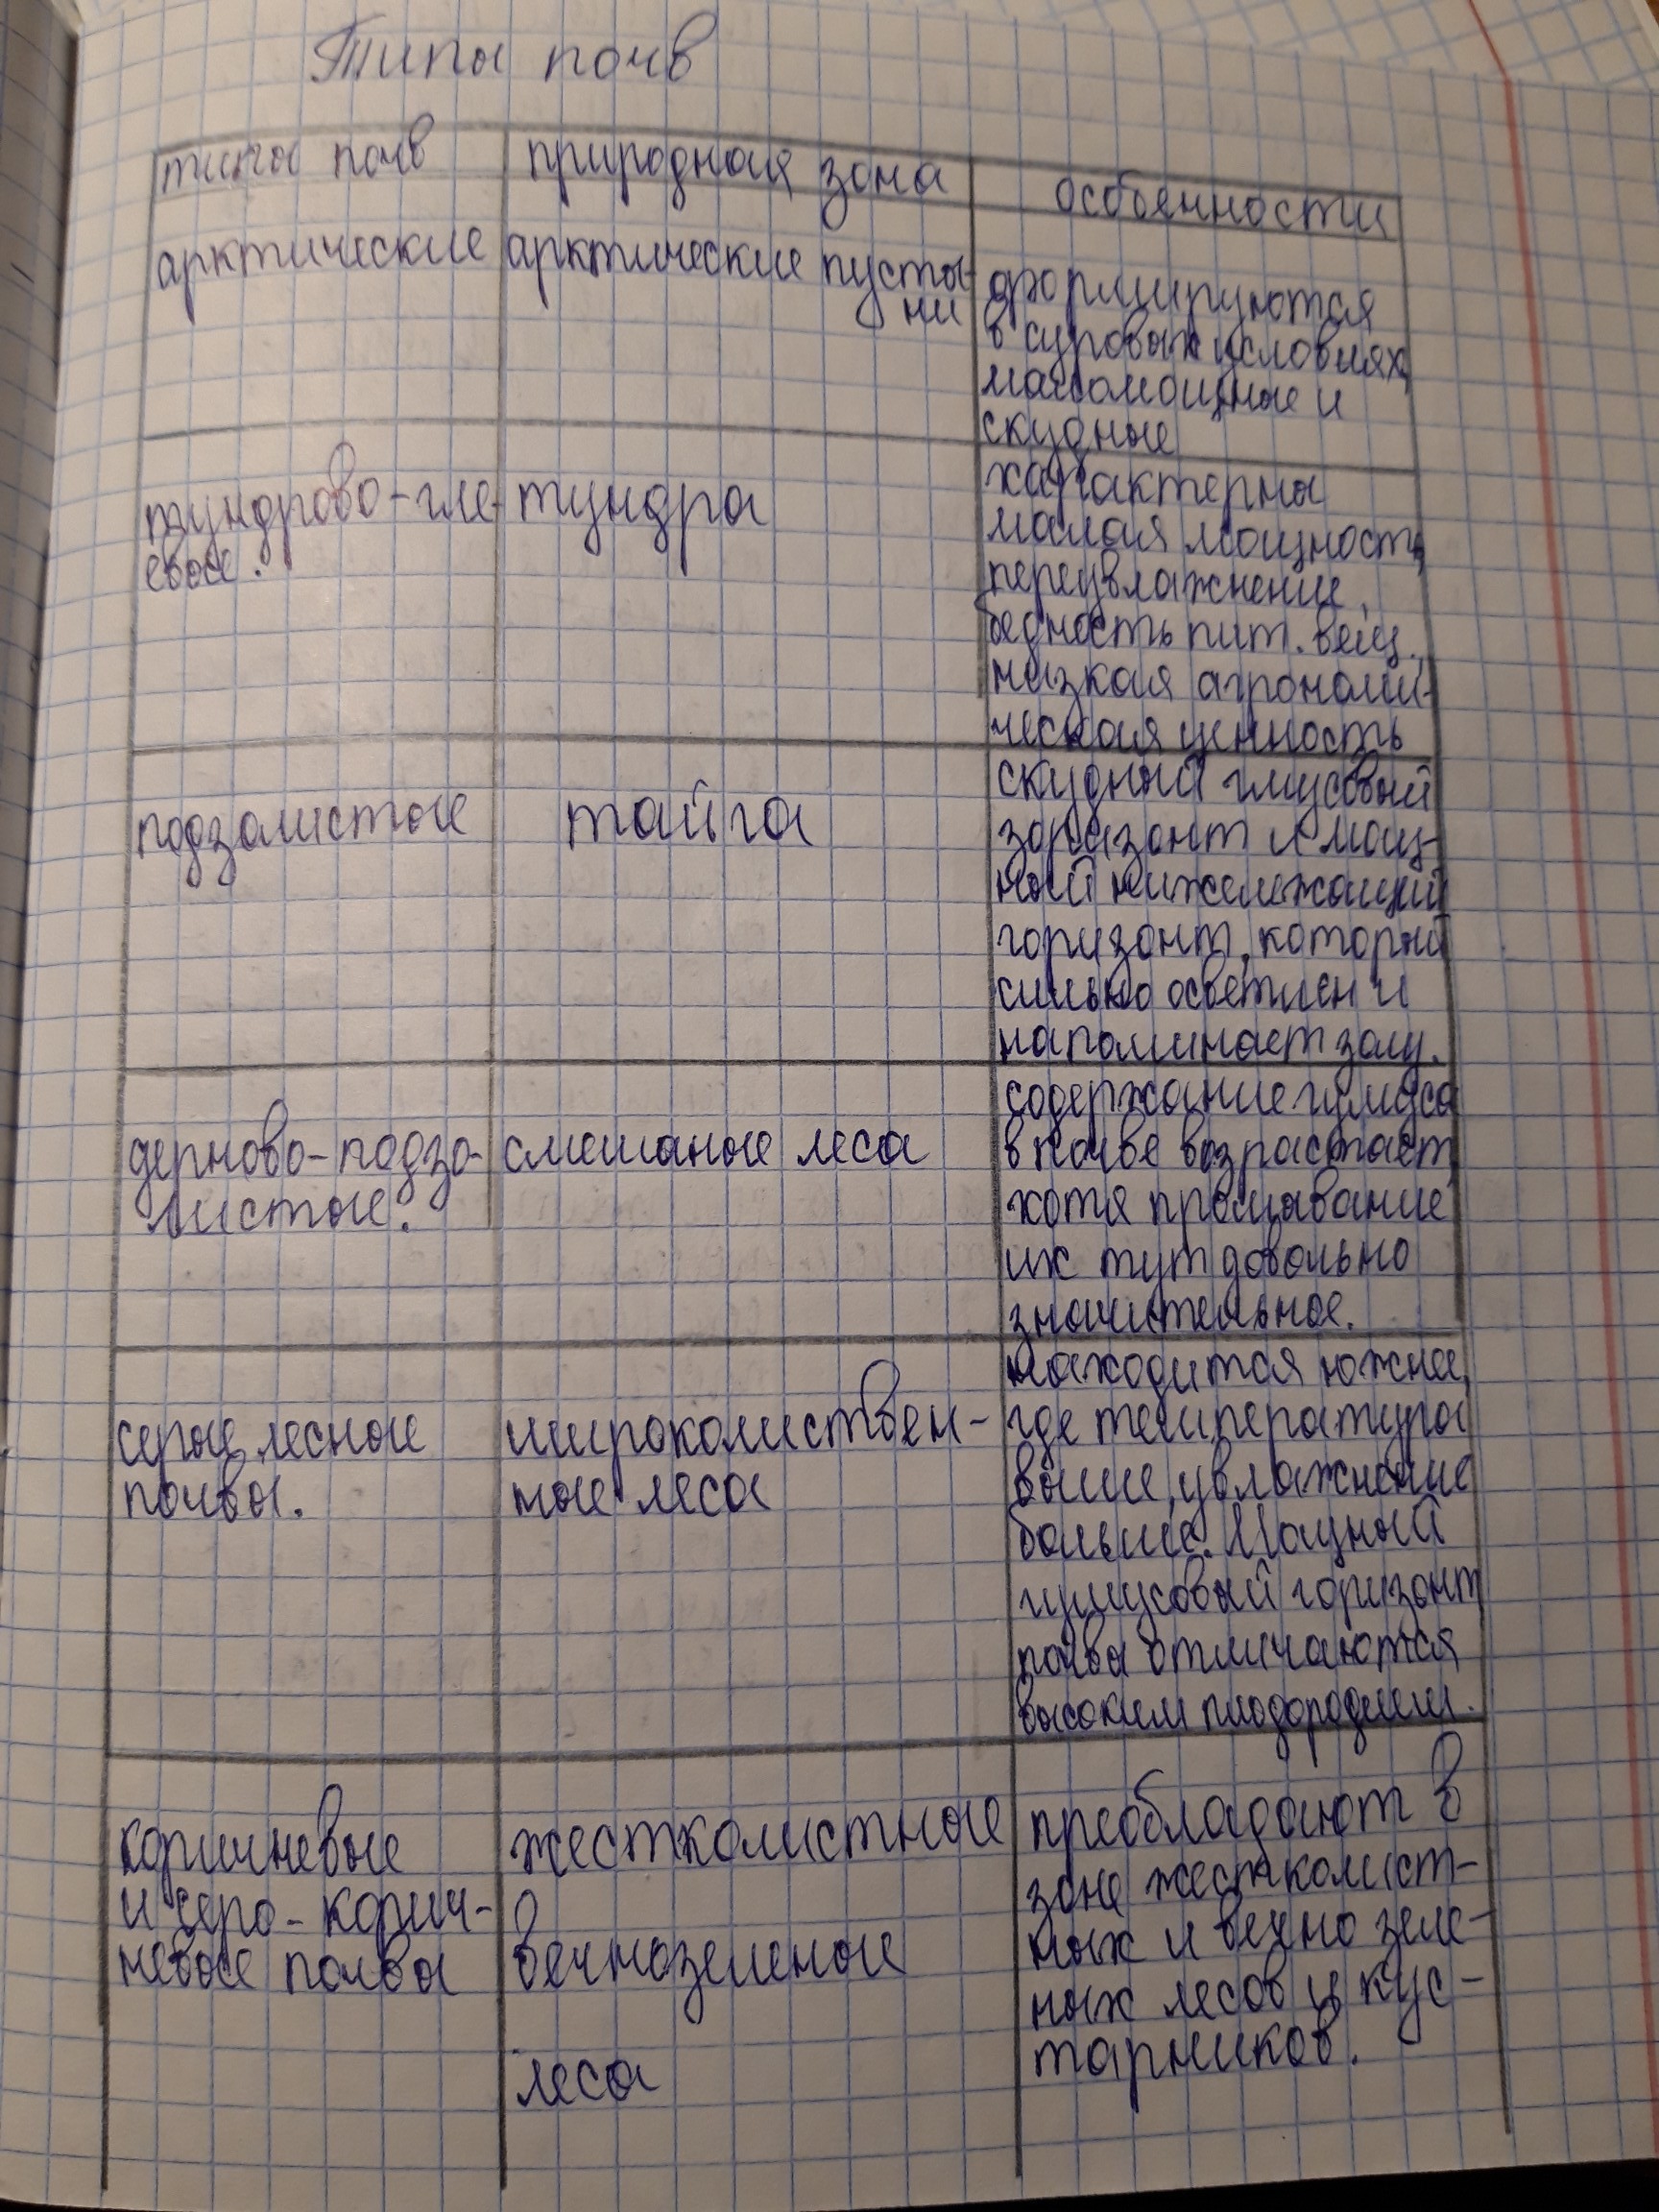 Типы почв
типы почв природная зона особенности
арктические арктические пусты-
ни
формируются
в суровых условиях,
маломощные и
скудные
тундрово-гле-
евые.
тундра
характерны
малая мощность,
переувлажнение,
бедность пит. вещ.,
низкая агрономи-
ческая ценность
подзолистые
тайга
скудный гмусовый
горизонт и мощ-
ный нижележащий
горизонт, который
сильно осветлен и
напоминает золу.
дерново-подзо-
листые.
смешаные леса
содержание гумуса
в почве возрастает,
хотя промывание
их тут довольно
значительное.
серые лесные
почвы.
широколиствен-
ные леса
находится южнее,
где температуры
выше, увлажнение
больше. Мощный
гумусовый горизонт
почвы отличаются
высоким плодородием.
коричневые
и серо-корич-
невые почвы
жестколистные
вечнозеленые
леса
преобладают в
зоне жестколист-
ных и вечно зеле-
ных лесов и кус-
тарников.